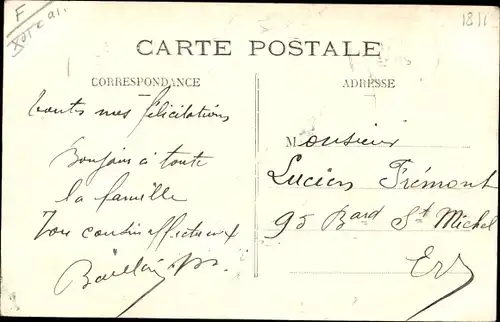 F
1811
CARTE POSTALE
CORRESPONDANCE
Toutes mes félicitations
Bonjour à toute
la famille
Ton cousin affectueux
ADRESSE
Monsieur
Lucien Frémont
95 Bard St Michel